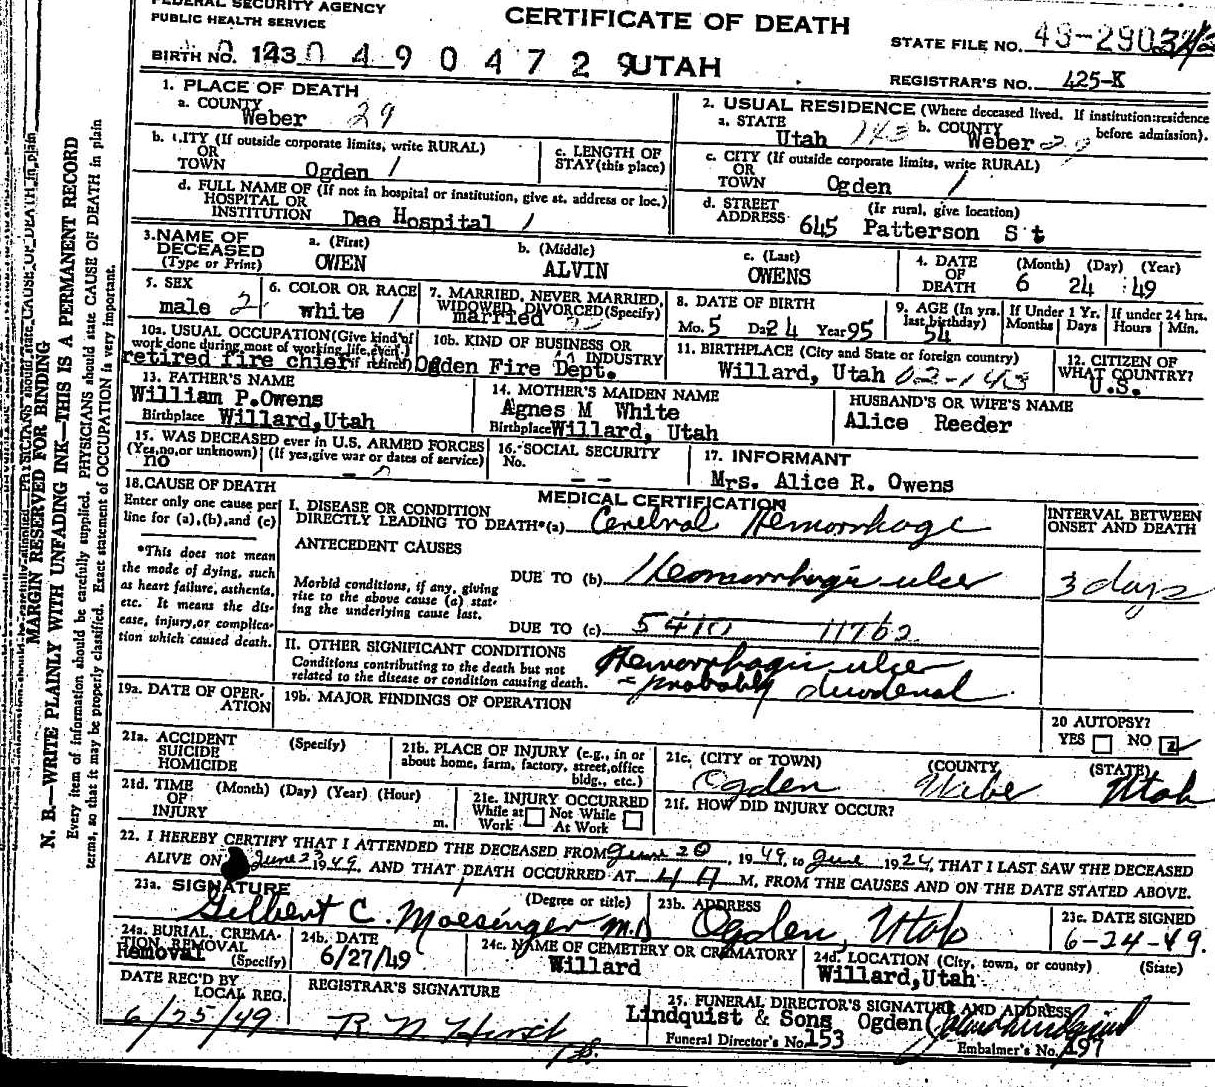 FEDERAL SECURITY AGENCY
PUBLIC HEALTH SERVICE
CERTIFICATE OF DEATH
STATE FILE NO.
BIRTH NO. 143 0 4 9 0 4 7 2 9 UTAH
REGISTRAR'S NO. 425-K
1. PLACE OF DEATH
a. COUNTY
Weber 29
2. USUAL RESIDENCE (Where deceased lived. If institution:residence before admission).
a. STATE Utah 143 b. COUNTY Weber
b. CITY (If outside corporate limits, write RURAL)
OR TOWN Ogden 1
c. LENGTH OF STAY (this place)
c. CITY (If outside corporate limits, write RURAL)
OR TOWN Ogden 1
d. FULL NAME OF (If not in hospital or institution, give st. address or loc.)
HOSPITAL OR INSTITUTION Dee Hospital 1
d. STREET ADDRESS (If rural, give location)
645 Patterson St
3. NAME OF DECEASED (Type or Print)
a. (First) OWEN
b. (Middle) ALVIN
c. (Last) OWENS
4. DATE OF DEATH (Month) (Day) (Year)
6 24 :49
5. SEX
male 2
6. COLOR OR RACE
white 1
7. MARRIED, NEVER MARRIED, WIDOWED, DIVORCED(Specify)
married
8. DATE OF BIRTH
Mo. 5 Da 24 Year 95
9. AGE (In yrs. last birthday)
54
If Under 1 Yr. Months Days
If under 24 hrs. Hours Min.
10a. USUAL OCCUPATION (Give kind of work done during most of working life, even if retired)
retired fire chief
10b. KIND OF BUSINESS OR INDUSTRY
Ogden Fire Dept.
11. BIRTHPLACE (City and State or foreign country)
Willard, Utah 02-143
12. CITIZEN OF WHAT COUNTRY?
U.S.
13. FATHER'S NAME
William P.Owens
Birthplace Willard,Utah
14. MOTHER'S MAIDEN NAME
Agnes M White
Birthplace Willard, Utah
HUSBAND'S OR WIFE'S NAME
Alice Reeder
15. WAS DECEASED ever in U.S. ARMED FORCES
(Yes,no,or unknown) (If yes,give war or dates of service)
no
16. SOCIAL SECURITY No.
- -
17. INFORMANT
Mrs. Alice R. Owens
18. CAUSE OF DEATH
Enter only one cause per line for (a),(b),and (c)
MEDICAL CERTIFICATION
I. DISEASE OR CONDITION DIRECTLY LEADING TO DEATH*(a) Cerebral Hemorrhage
INTERVAL BETWEEN ONSET AND DEATH
*This does not mean the mode of dying, such as heart failure, asthenia, etc. It means the disease, injury,or complication which caused death.
ANTECEDENT CAUSES
Morbid conditions, if any, giving rise to the above cause (a) stating the underlying cause last.
DUE TO (b) Hemorrhagic ulcer
3 days
DUE TO (c)
II. OTHER SIGNIFICANT CONDITIONS
Conditions contributing to the death but not related to the disease or condition causing death.
Hemorrhagic ulcer
- probably duodenal
19a. DATE OF OPERATION
19b. MAJOR FINDINGS OF OPERATION
20 AUTOPSY?
YES NO
21a. ACCIDENT SUICIDE HOMICIDE (Specify)
21b. PLACE OF INJURY (e.g., in or about home, farm, factory, street,office bldg., etc.)
21c. (CITY or TOWN) (COUNTY) (STATE)
Ogden Weber Utah
21d. TIME OF INJURY (Month) (Day) (Year) (Hour) m.
21e. INJURY OCCURRED
While at Work Not While At Work
21f. HOW DID INJURY OCCUR?
22. I HEREBY CERTIFY THAT I ATTENDED THE DECEASED FROM June 20, 1949, to June 1924, THAT I LAST SAW THE DECEASED
ALIVE ON June 23 1949, AND THAT DEATH OCCURRED AT M, FROM THE CAUSES AND ON THE DATE STATED ABOVE.
23a. SIGNATURE (Degree or title)
Gilbert C. Moesinger M.D
23b. ADDRESS
Ogden, Utah
23c. DATE SIGNED
6-24-49.
24a. BURIAL, CREMATION, REMOVAL (Specify)
Removal
24b. DATE
6/27/49
24c. NAME OF CEMETERY OR CREMATORY
Willard
24d. LOCATION (City, town, or county) (State)
Willard,Utah
DATE REC'D BY LOCAL REG.
6/25/49
REGISTRAR'S SIGNATURE
25. FUNERAL DIRECTOR'S SIGNATURE AND ADDRESS
Lindquist & Sons Ogden
Funeral Director's No. 153
Embalmer's No. 197
MARGIN RESERVED FOR BINDING
N. B.—WRITE PLAINLY WITH UNFADING INK—THIS IS A PERMANENT RECORD
Every item of information should be carefully supplied. PHYSICIANS should state CAUSE OF DEATH in plain
terms, so that it may be properly classified. Exact statement of OCCUPATION is very important.